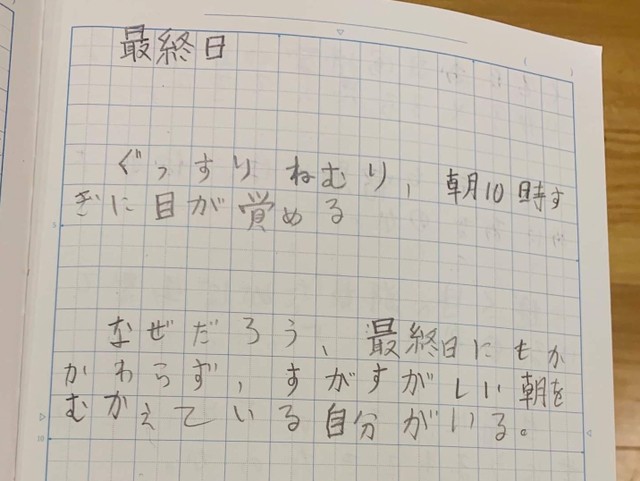 最終日
ぐっすりねむり、朝10時す
ぎに目が覚める
なぜだろう、最終日にもか
かわらず、すがすがしい朝を
むかえている自分がいる。